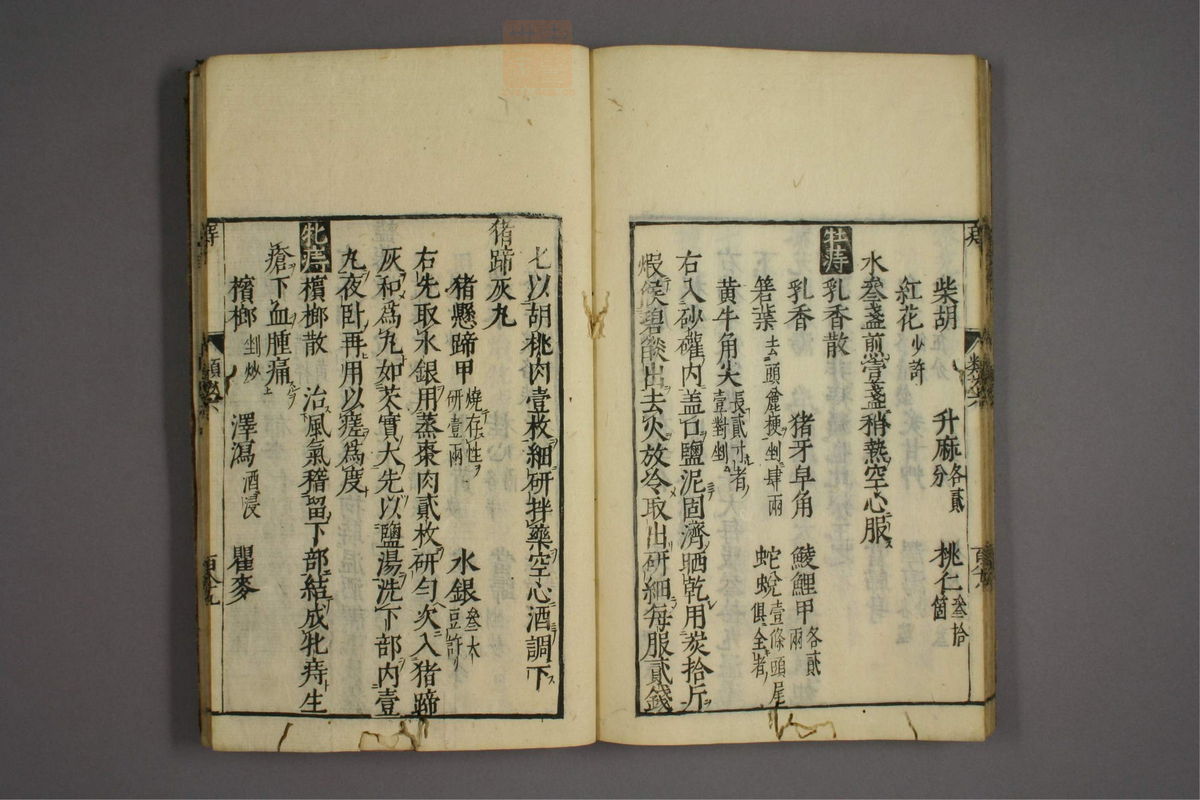 柴胡 升麻各貳分 桃仁叁拾箇
紅花少許
水叁盞煎壹盞稍熱空心服
牡痔
乳香散
乳香 猪牙皁角 鯪鯉甲各貳兩
箬葉去頭麄梗剉肆兩 蛇蛻壹條頭尾俱全者
黄牛角尖長貳寸者壹對剉
右入砂礶内盖口鹽泥固濟晒乾用炭拾斤
煆候碧熖出去火放冷取出研細每服貳錢
七以胡桃肉壹枚細研拌藥空心酒調下
猪蹄灰丸
猪懸蹄甲燒存性研壹兩 水銀叁大豆許
右先取水銀用蒸棗肉貳枚研匀次入猪蹄
灰和爲丸如芡實大先以鹽湯洗下部内壹
丸夜卧再用以瘥爲度
牝痔
檳榔散 治風氣稽留下部結成牝痔生
瘡下血腫痛
檳榔剉炒 澤瀉酒浸 瞿麥